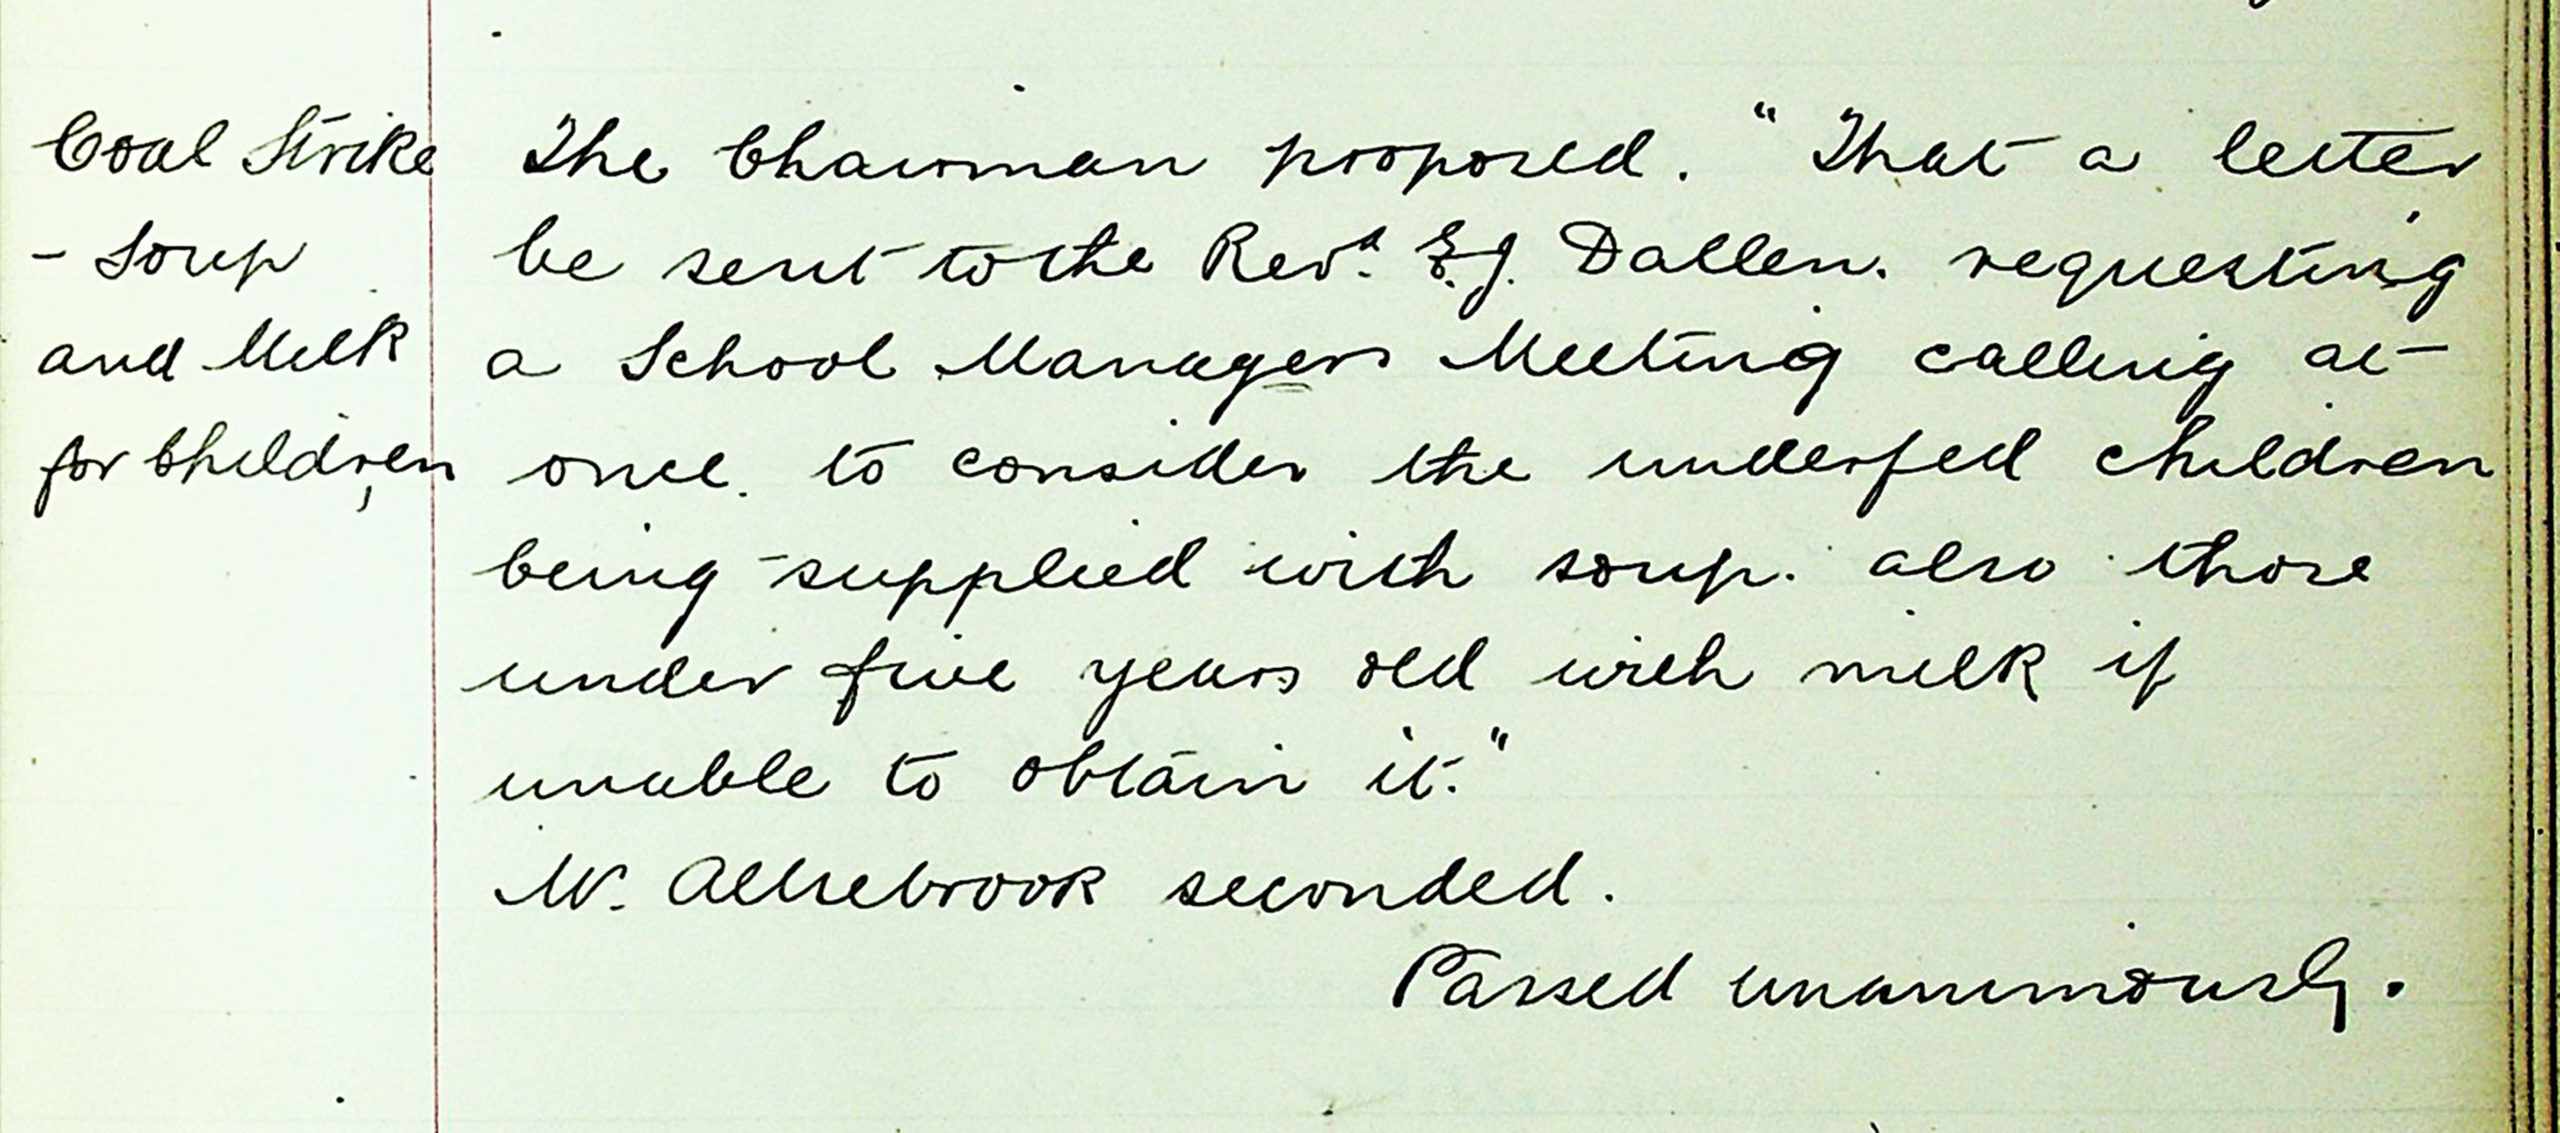 Coal Strike
- Soup
and Milk
for Children
The Chairman proposed. "That a letter
be sent to the Revd. E.J. Dallen. requesting
a School Managers Meeting calling at
once. to consider the underfed children
being supplied with soup. also those
under five years old with milk if
unable to obtain it."
Mr. Allsebrook seconded.
Passed unanimously.